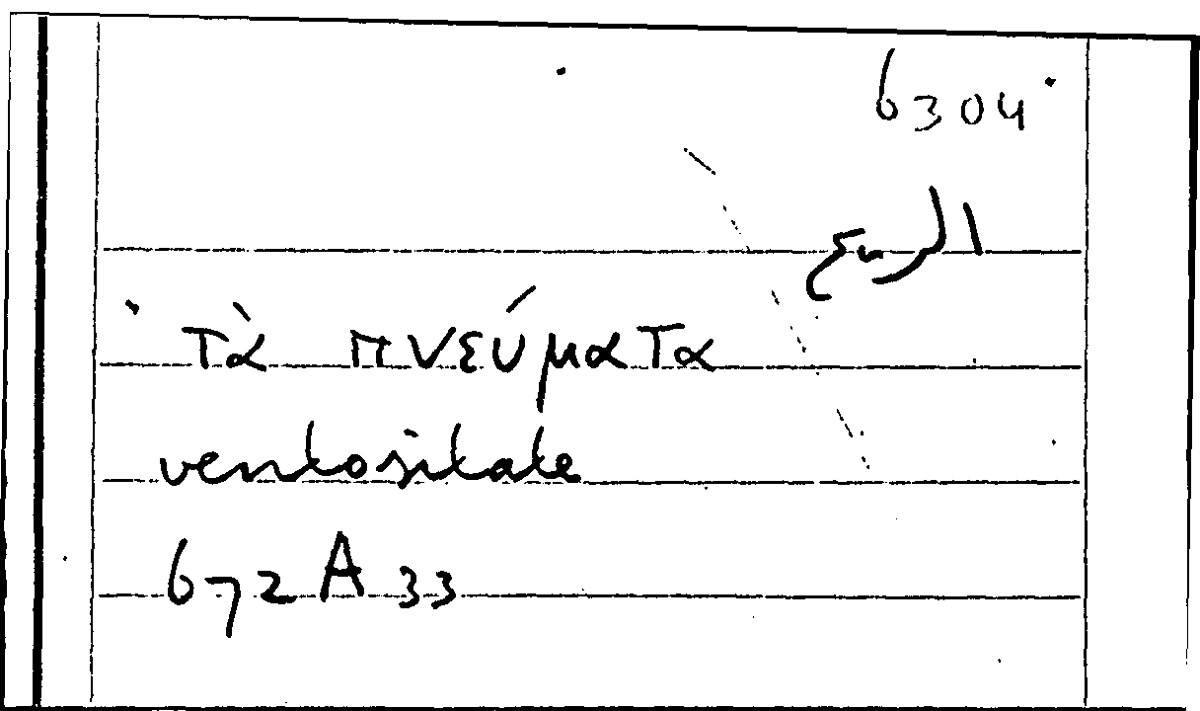 6304
الريح
τὰ πνεύματα
ventositate
672 A 33